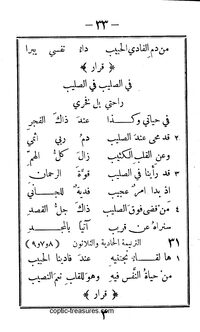 — ٣٣ —
من دم الفادي الحبيب داه نفسي يبرا
﴿ قرار ﴾
في الصليب في الصليب
راحتي بل فخري
في حياتي وكذا عند ذاك الفجر
٢ قد محى عند الصليب دم ربي اثمي
وعن القلب الكئيب زال كل الهم
٣ قد رأينا في الصليب قوة الرحمان
اذ بدا امر عجيب فدية للجاني
٤ من قضى فوق الصليب ذاك جل القصد
سنراه عن قريب آتيا بالمجد
٣١ الترنيمة الحادية والثلاثون (٨و٧و٩)
١ ها لقاء نجتنيه عند فادينا الحبيب
من حياة النفس فيه وهو للقلب نعم النصيب
﴿ قرار ﴾
coptic-treasures.com